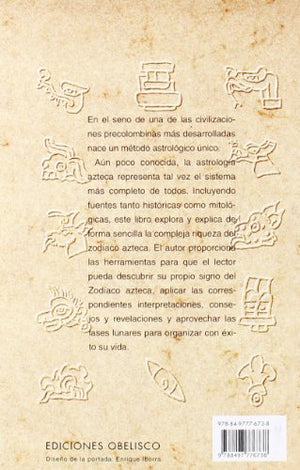 En el seno de una de las civilizaciones
precolombinas más desarrolladas
nace un método astrológico único.
Aún poco conocida, la astrología
azteca representa tal vez el sistema
más completo de todos. Incluyendo
fuentes tanto históricas como mitoló-
gicas, este libro explora y explica de
forma sencilla la compleja riqueza del
zodíaco azteca. El autor proporciona
las herramientas para que el lector
pueda descubrir su propio signo del
Zodíaco azteca, aplicar las corres-
pondientes interpretaciones, conse-
jos y revelaciones y aprovechar las
fases lunares para organizar con éxi-
to su vida.
EDICIONES OBELISCO
Diseño de la portada: Enrique Iborra
978-84-9777-673-8
9 788497 776738